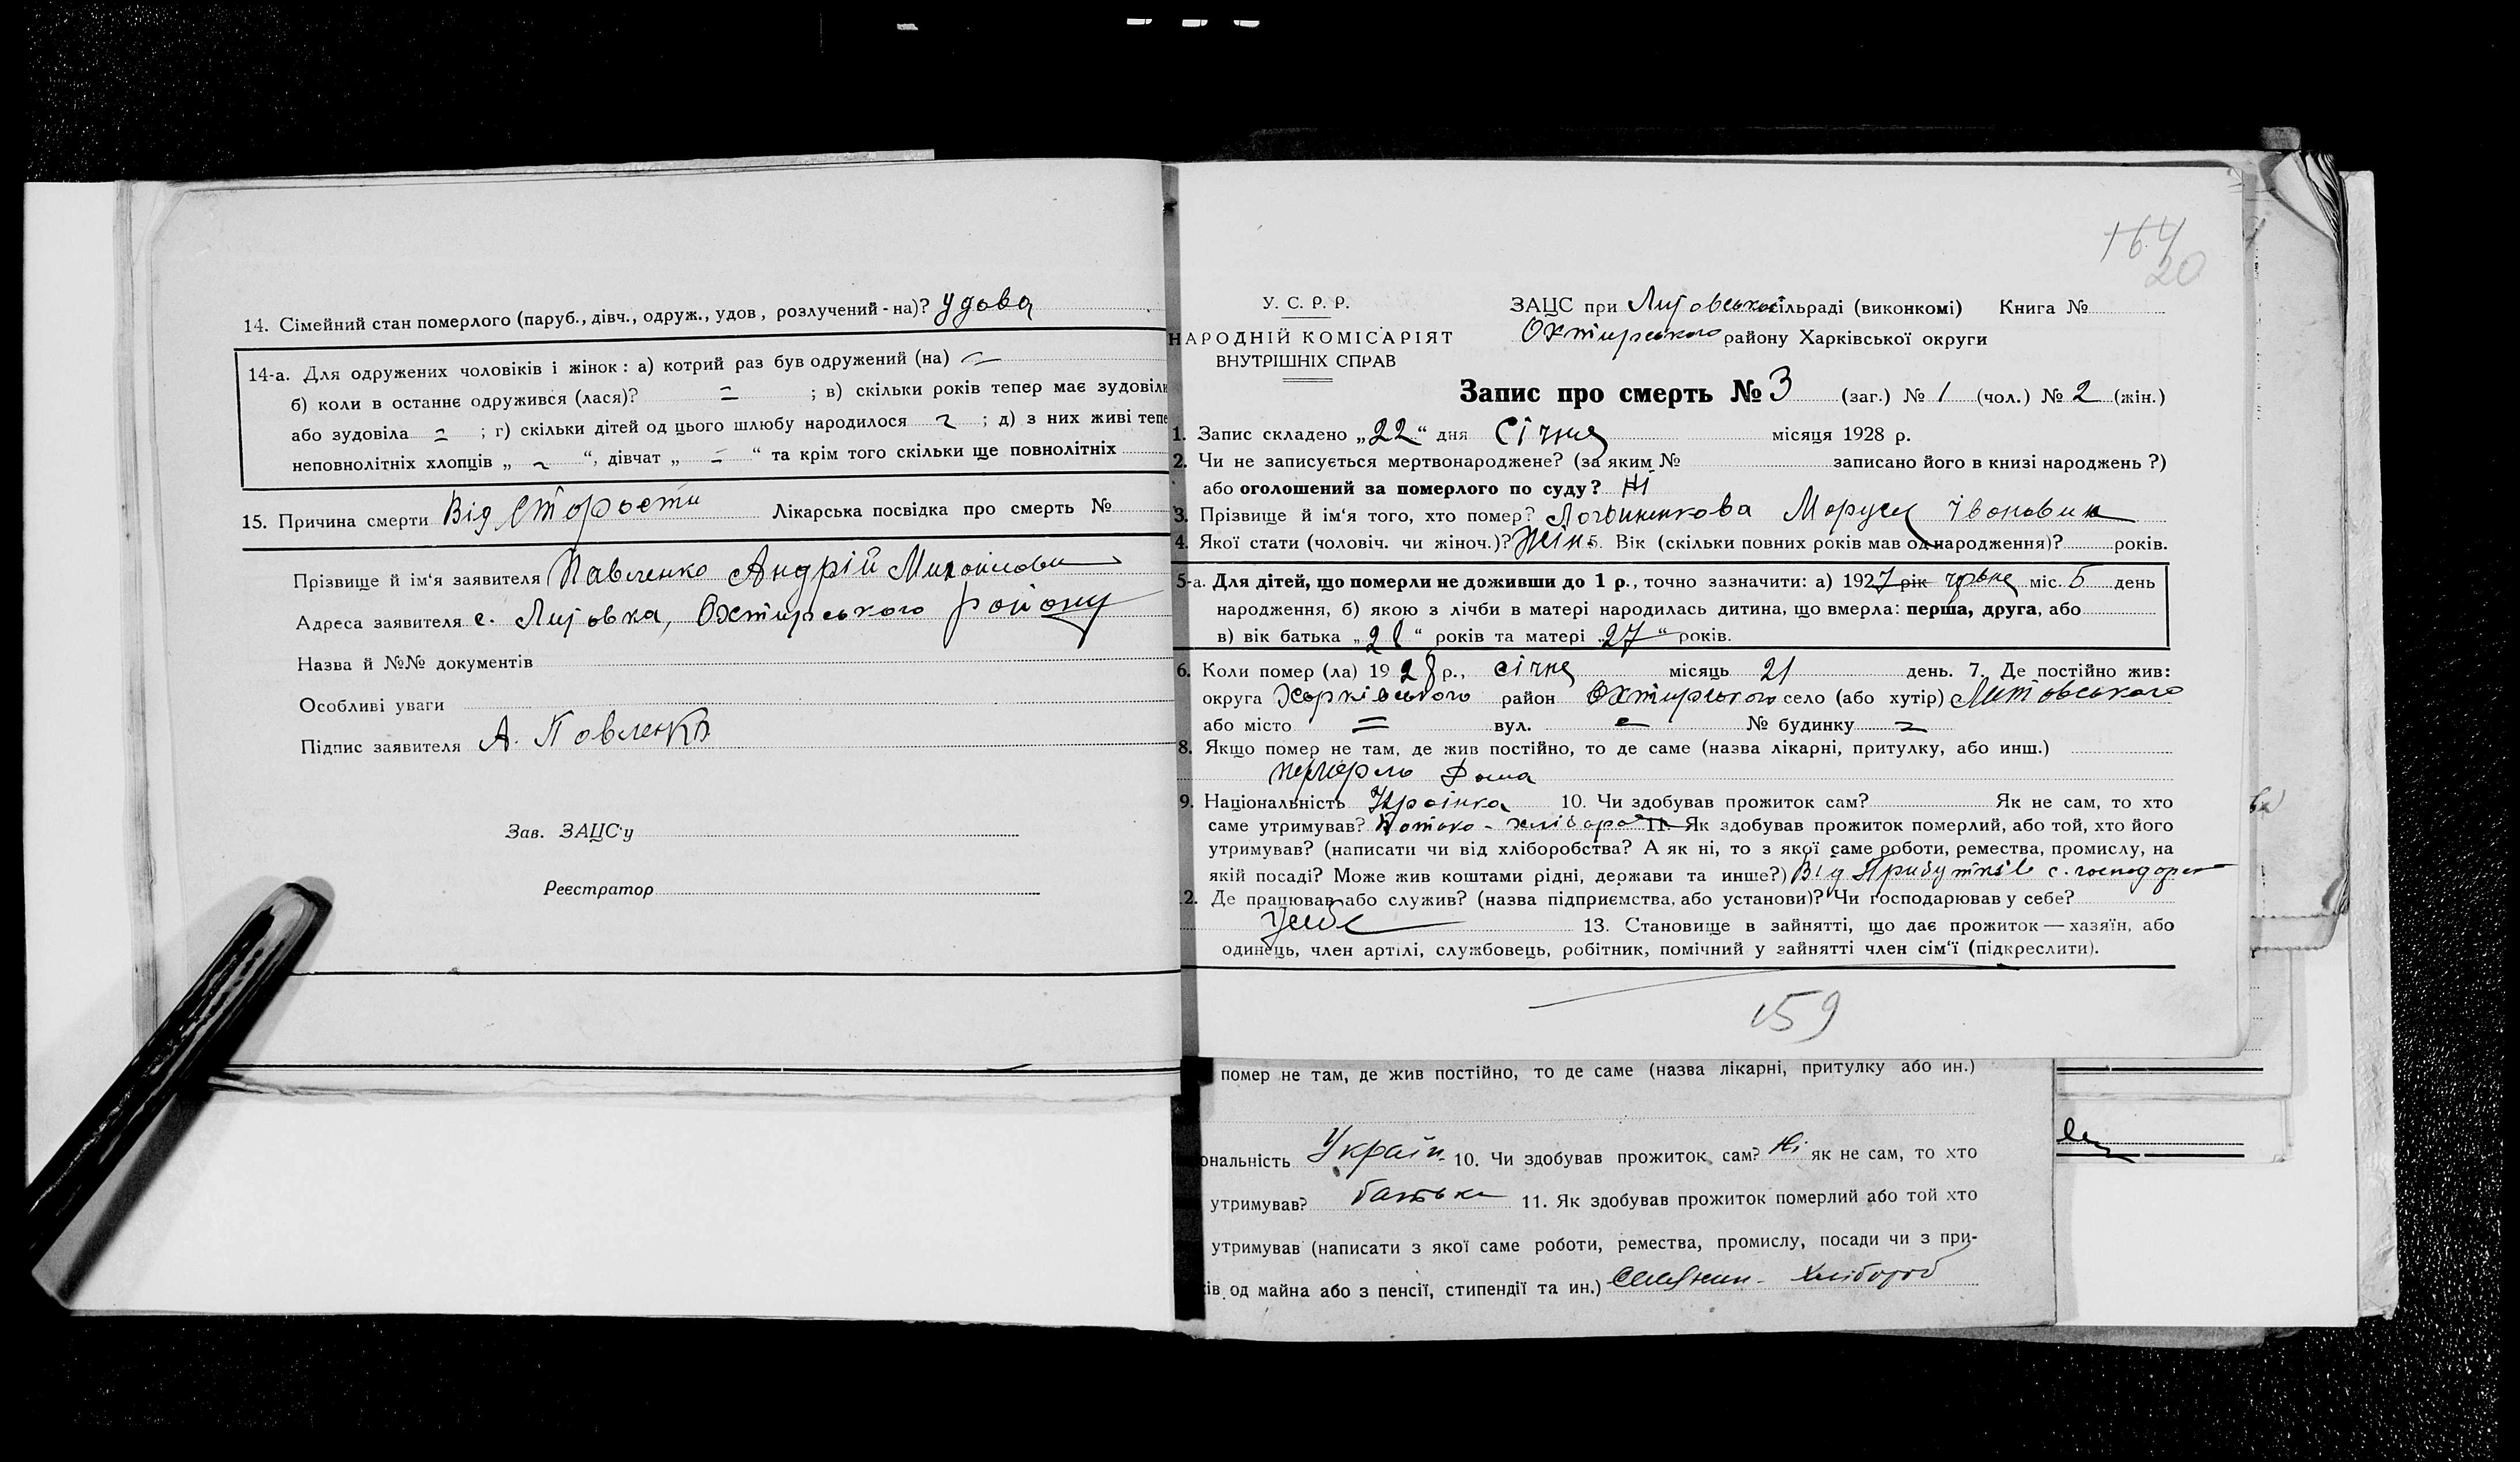 14. Сімейний стан померлого (паруб., дівч., одруж., удов., розлучений - на)? удова
14-а. Для одружених чоловіків і жінок: а) котрий раз був одружений (на) =
б) коли в останнє одружився (лася)? = ; в) скільки років тепер має зудовіли
або зудовіла = ; г) скільки дітей од цього шлюбу народилося ; д) з них живі тепе
неповнолітніх хлопців „ “, дівчат „ = “ та крім того скільки ще повнолітніх
15. Причина смерти Від старости Лікарська посвідка про смерть №
Прізвище й ім‘я заявителя Павленко Андрій
Адреса заявителя с. Литовка, Охтирського району
Назва й №№ документів
Особливі уваги
Підпис заявителя А. Павленко
Зав. ЗАЦС‘у
Реєстратор
164
20
У. С. Р. Р.
НАРОДНІЙ КОМІСАРІЯТ
ВНУТРІШНІХ СПРАВ
ЗАЦС при Литовській сільраді (виконкомі) Книга №
Охтирського району Харківської округи
Запис про смерть № 3 (заг.) № 1 (чол.) № 2 (жін.)
1. Запис складено „22“ дня Січня місяця 1928 р.
2. Чи не записується мертвонароджене? (за яким № записано його в книзі народжень ?)
або оголошений за померлого по суду? Ні
3. Прізвище й ім‘я того, хто помер? Маруся
4. Якої стати (чоловіч. чи жіноч.)? Жін. 5. Вік (скільки повних років мав од народження)? років.
5-а. Для дітей, що померли не доживши до 1 р., точно зазначити: а) 1927 рік червня міс. 5 день
народження, б) якою з лічби в матері народилась дитина, що вмерла: перша, друга, або
в) вік батька „28“ років та матері „27“ років.
6. Коли помер (ла) 1928 р., січня місяць 21 день. 7. Де постійно жив:
округа Харківського район Охтирського село (або хутір) Литовського
або місто = вул. = № будинку =
8. Якщо помер не там, де жив постійно, то де саме (назва лікарні, притулку, або инш.)
дома
9. Національність Українка 10. Чи здобував прожиток сам? Як не сам, то хто
саме утримував? Батько - хлібороб 11. Як здобував прожиток померлий, або той, хто його
утримував? (написати чи від хліборобства? А як ні, то з якої саме роботи, ремества, промислу, на
якій посаді? Може жив коштами рідні, держави та инше?) Від прибутків с. господар
12. Де працював або служив? (назва підприємства, або установи)? Чи господарював у себе?
У себе 13. Становище в зайнятті, що дає прожиток — хазяїн, або
одинець, член артілі, службовець, робітник, помічний у зайнятті член сім‘ї (підкреслити).
159
помер не там, де жив постійно, то де саме (назва лікарні, притулку або ин.)
ональність Україн. 10. Чи здобував прожиток сам? Ні як не сам, то хто
утримував? батька 11. Як здобував прожиток померлий або той хто
утримував (написати з якої саме роботи, ремества, промислу, посади чи з при-
ків од майна або з пенсії, стипендії та ин.) Селянин - хлібороб